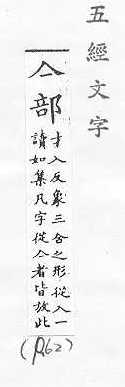 五經文字
亼部
才入反象三合之形從入一
讀如集凡字從亼者皆放此
(P.62)